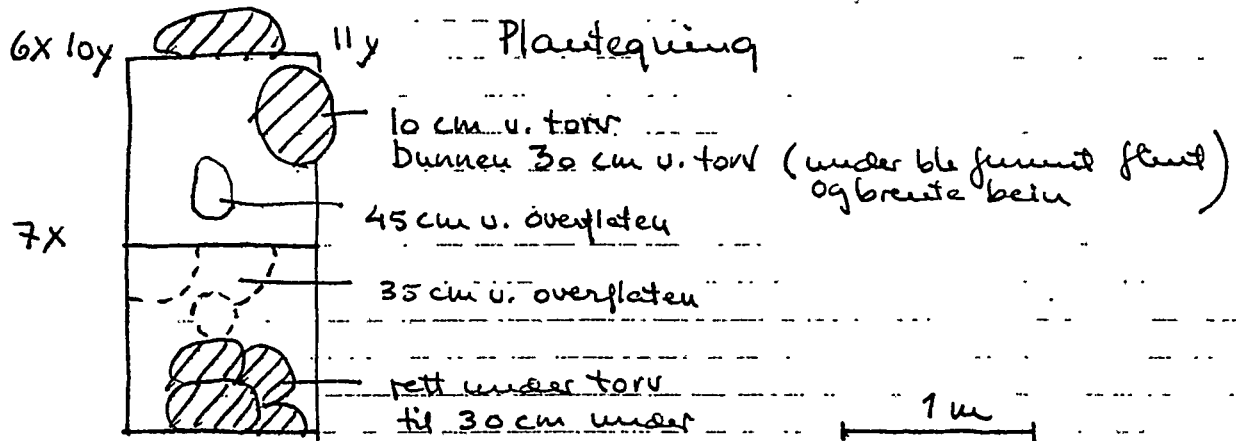 6X 10y 11y Plantegning
10 cm u. torv
bunnen 30 cm u. torv (under ble funnet flint
og brente bein)
45 cm u. overflaten
7X
35 cm u. overflaten
rett under torv
til 30 cm under
1 m